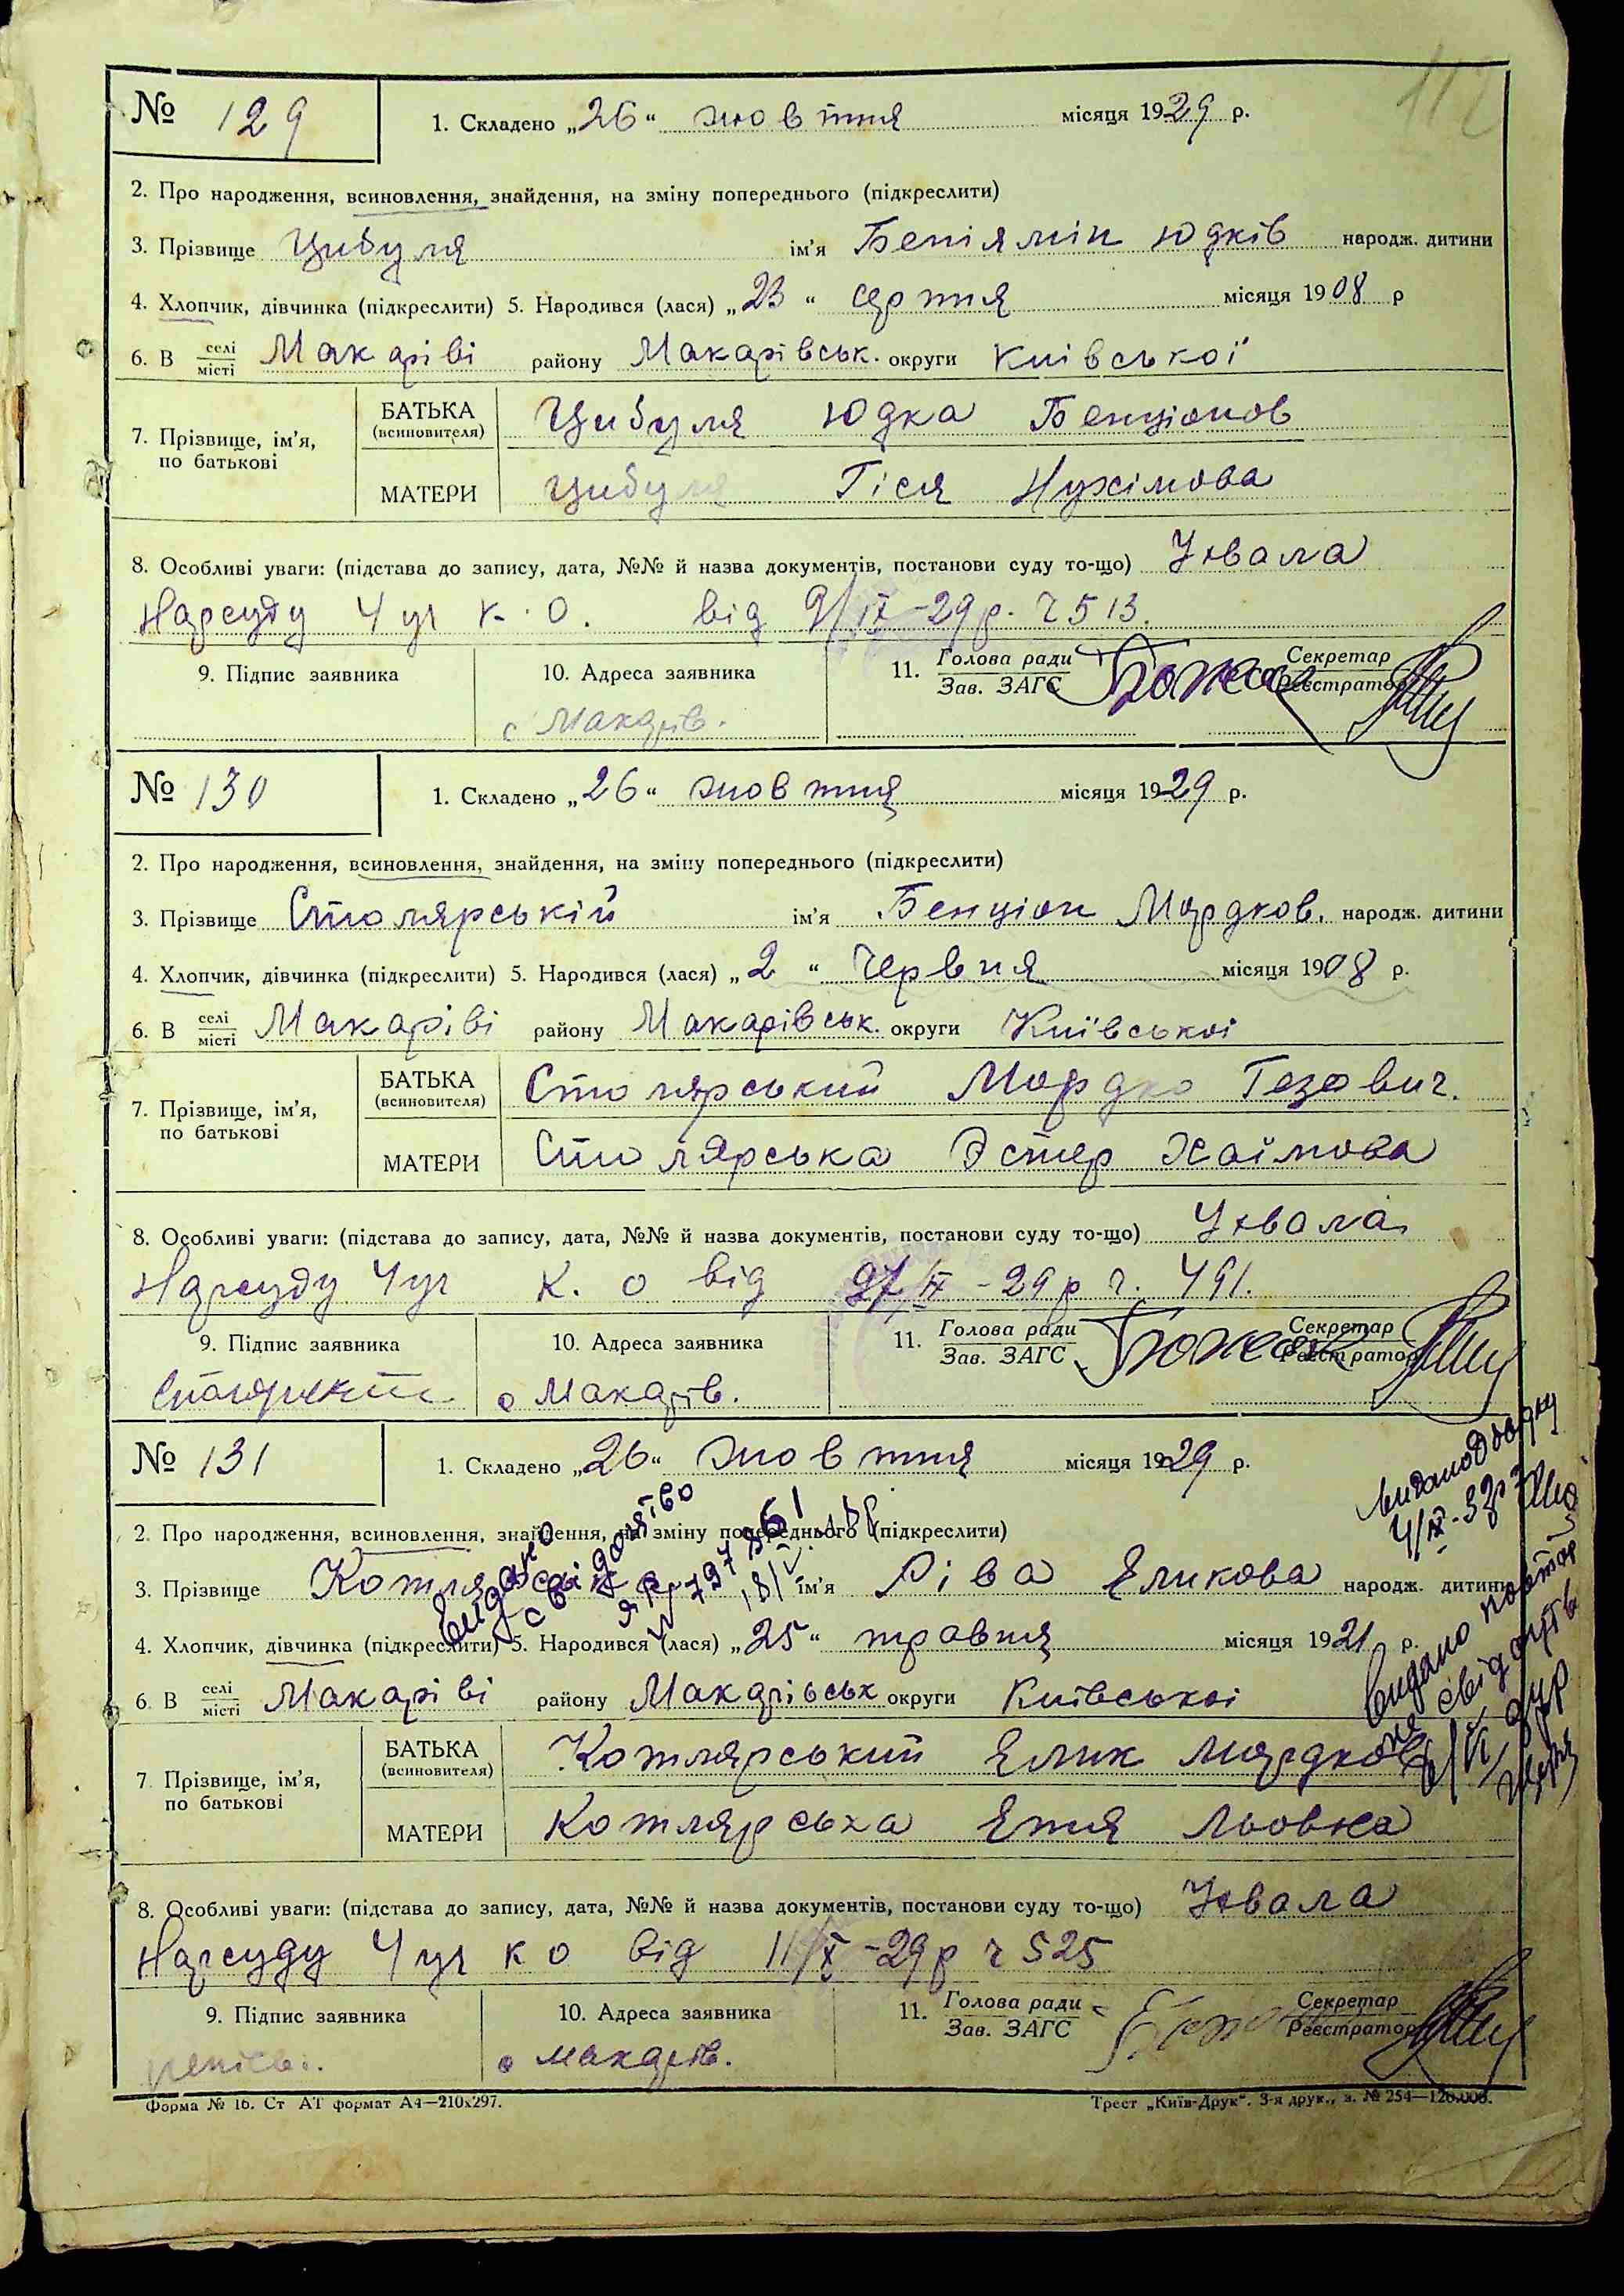 112
№ 129
1. Складено „26“ жовтня місяця 1929 р.
2. Про народження, всиновлення, знайдення, на зміну попереднього (підкреслити)
3. Прізвище Цибуля ім’я Беніямін Юдків народж. дитини
4. Хлопчик, дівчинка (підкреслити) 5. Народився (лася) „23“ серпня місяця 1908 р
6. В селі місті Макаріві району Макарівськ. округи Київської
7. Прізвище, ім’я, по батькові
БАТЬКА (всиновителя) Цибуля Юдка Бенціонов
МАТЕРИ Цибуля Гіся Нухімова
8. Особливі уваги: (підстава до запису, дата, №№ й назва документів, постанови суду то-що) Ухвала
Нарсуду 4 уч К. О. від 9/IX-29р. ч 513.
9. Підпис заявника 10. Адреса заявника 11. Голова ради Зав. ЗАГС Секретар Реєстратор
с Макарів.
№ 130
1. Складено „26“ жовтня місяця 1929 р.
2. Про народження, всиновлення, знайдення, на зміну попереднього (підкреслити)
3. Прізвище Столярській ім’я Бенціон Мордков. народж. дитини
4. Хлопчик, дівчинка (підкреслити) 5. Народився (лася) „2“ Червня місяця 1908 р.
6. В селі місті Макаріві району Макарівськ. округи Київськоі
7. Прізвище, ім’я, по батькові
БАТЬКА (всиновителя) Столярський Мордко Гезович.
МАТЕРИ Столярська Эстер Хаімова
8. Особливі уваги: (підстава до запису, дата, №№ й назва документів, постанови суду то-що) Ухвала
Нарсуду 4 уч К. О від 27/IX-29р ч. 491.
9. Підпис заявника 10. Адреса заявника 11. Голова ради Зав. ЗАГС Секретар Реєстратор
с Макарів.
№ 131
1. Складено „26“ жовтня місяця 1929 р.
2. Про народження, всиновлення, знайдення, на зміну попереднього (підкреслити)
3. Прізвище ім’я Ріва Еликова народж. дитини
Видано свідоцтво
Видано довідку
4/IX-32р
4. Хлопчик, дівчинка (підкреслити) 5. Народився (лася) „25“ травня місяця 1921 р.
Видано повтор
не свідоцтв
6. В селі місті Макаріві району Макарівськ округи Київськоі
7. Прізвище, ім’я, по батькові
БАТЬКА (всиновителя) Котлярський Елик Мордков
МАТЕРИ Котлярська Етя Львовна
8. Особливі уваги: (підстава до запису, дата, №№ й назва документів, постанови суду то-що) Ухвала
Нарсуду 4 уч К О від 11/X-29р ч 525
9. Підпис заявника 10. Адреса заявника 11. Голова ради Зав. ЗАГС Секретар Реєстратор
с Макарів.
Форма № 16. Ст АТ формат А4—210х297. Трест „Київ-Друк“. 3-я друк., з. № 254—120.000.